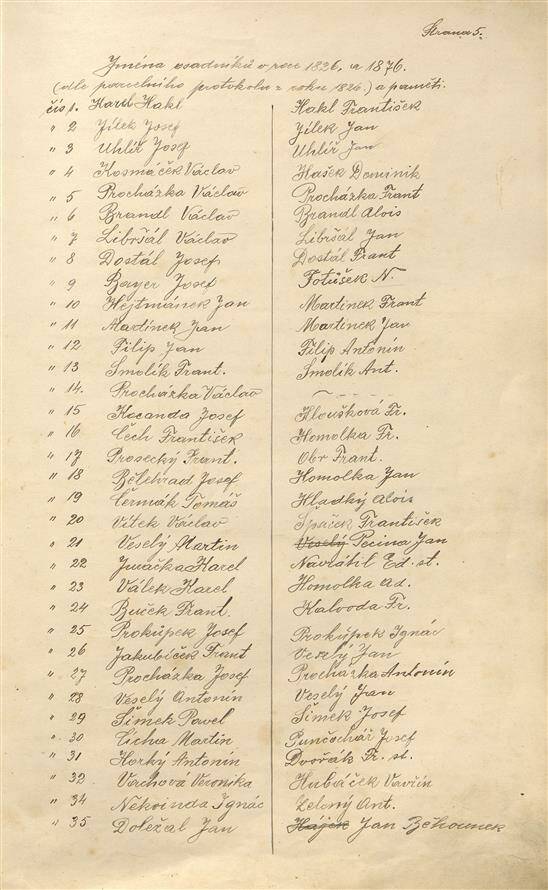 Strana 5.
Jména osadníků v roce 1826. a 1876.
(dle parcelního protokolu z roku 1826.) a paměti.
čís 1. Karel Hakl Hakl František
" 2 Jílek Josef Jílek Jan
" 3 Uhlíř Josef Uhlíř Jan
" 4 Kosmáček Václav Hašek Dominik
" 5 Procházka Václav Procházka Frant
" 6 Brandl Václav Brandl Alois
" 7 Libršál Václav Libršál Jan
" 8 Dostál Josef Dostál Frant
" 9 Bayer Josef Fotůšek N.
" 10 Hejtmánek Jan Martinek Frant
" 11 Martinek Jan Martinek Jan
" 12 Filip Jan Filip Antonín
" 13 Smolík Frant. Smolík Ant.
" 14. Procházka Václav
" 15 Kocanda Josef Kloušková Fr.
" 16 Čech František Homolka Fr.
" 17 Prosecký Frant. Obr Frant.
" 18 Bělehrad Josef Homolka Jan
" 19 Čermák Tomáš Hladký Alois
" 20 Vítek Václav Špaček František
" 21 Veselý Martin Veselý Pecina Jan
" 22 Karel Navrátil Ed. st.
" 23 Válek Karel Homolka Ad.
" 24 Buček Frant. Kalvoda Fr.
" 25 Prokůpek Josef Prokůpek Ignác
" 26 Jakubíček Frant Veselý Jan
" 27 Procházka Josef Procházka Antonín
" 28 Veselý Antonín Veselý Jan
" 29 Šimek Pavel Šimek Josef
" 30 Cícha Martin Punčochář Josef
" 31 Horký Antonín Dvořák Fr. st.
" 32 Vrchová Veronika Hubáček Vavřín
" 34 Nekvinda Ignác Zelený Ant.
" 35 Doležal Jan Hájek Jan Běhounek